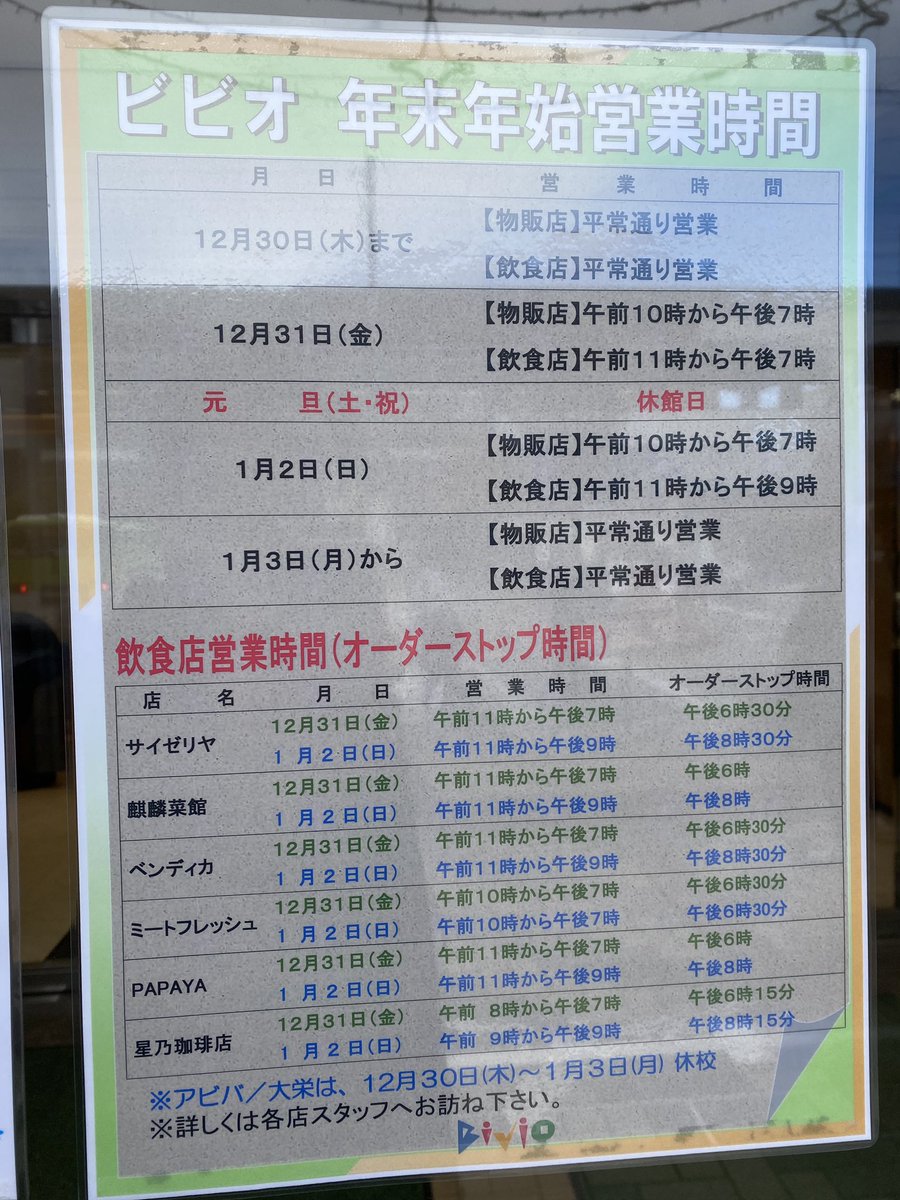 ビビオ 年末年始営業時間
月 日 営 業 時 間
12月30日(木)まで 【物販店】平常通り営業
【飲食店】平常通り営業
12月31日(金) 【物販店】午前10時から午後7時
【飲食店】午前11時から午後7時
元 旦(土・祝) 休館日
1月2日(日) 【物販店】午前10時から午後7時
【飲食店】午前11時から午後9時
1月3日(月)から 【物販店】平常通り営業
【飲食店】平常通り営業
飲食店営業時間(オーダーストップ時間)
店 名 月 日 営 業 時 間 オーダーストップ時間
サイゼリヤ 12月31日(金) 午前11時から午後7時 午後6時30分
1月2日(日) 午前11時から午後9時 午後8時30分
麒麟菜館 12月31日(金) 午前11時から午後7時 午後6時
1月2日(日) 午前11時から午後9時 午後8時
ベンディカ 12月31日(金) 午前11時から午後7時 午後6時30分
1月2日(日) 午前11時から午後9時 午後8時30分
ミートフレッシュ 12月31日(金) 午前10時から午後7時 午後6時30分
1月2日(日) 午前10時から午後7時 午後6時30分
PAPAYA 12月31日(金) 午前11時から午後7時 午後6時
1月2日(日) 午前11時から午後9時 午後8時
星乃珈琲店 12月31日(金) 午前 8時から午後7時 午後6時15分
1月2日(日) 午前 9時から午後9時 午後8時15分
※アビバ/大栄は、12月30日(木)~1月3日(月) 休校
※詳しくは各店スタッフへお訪ね下さい。
BiViO